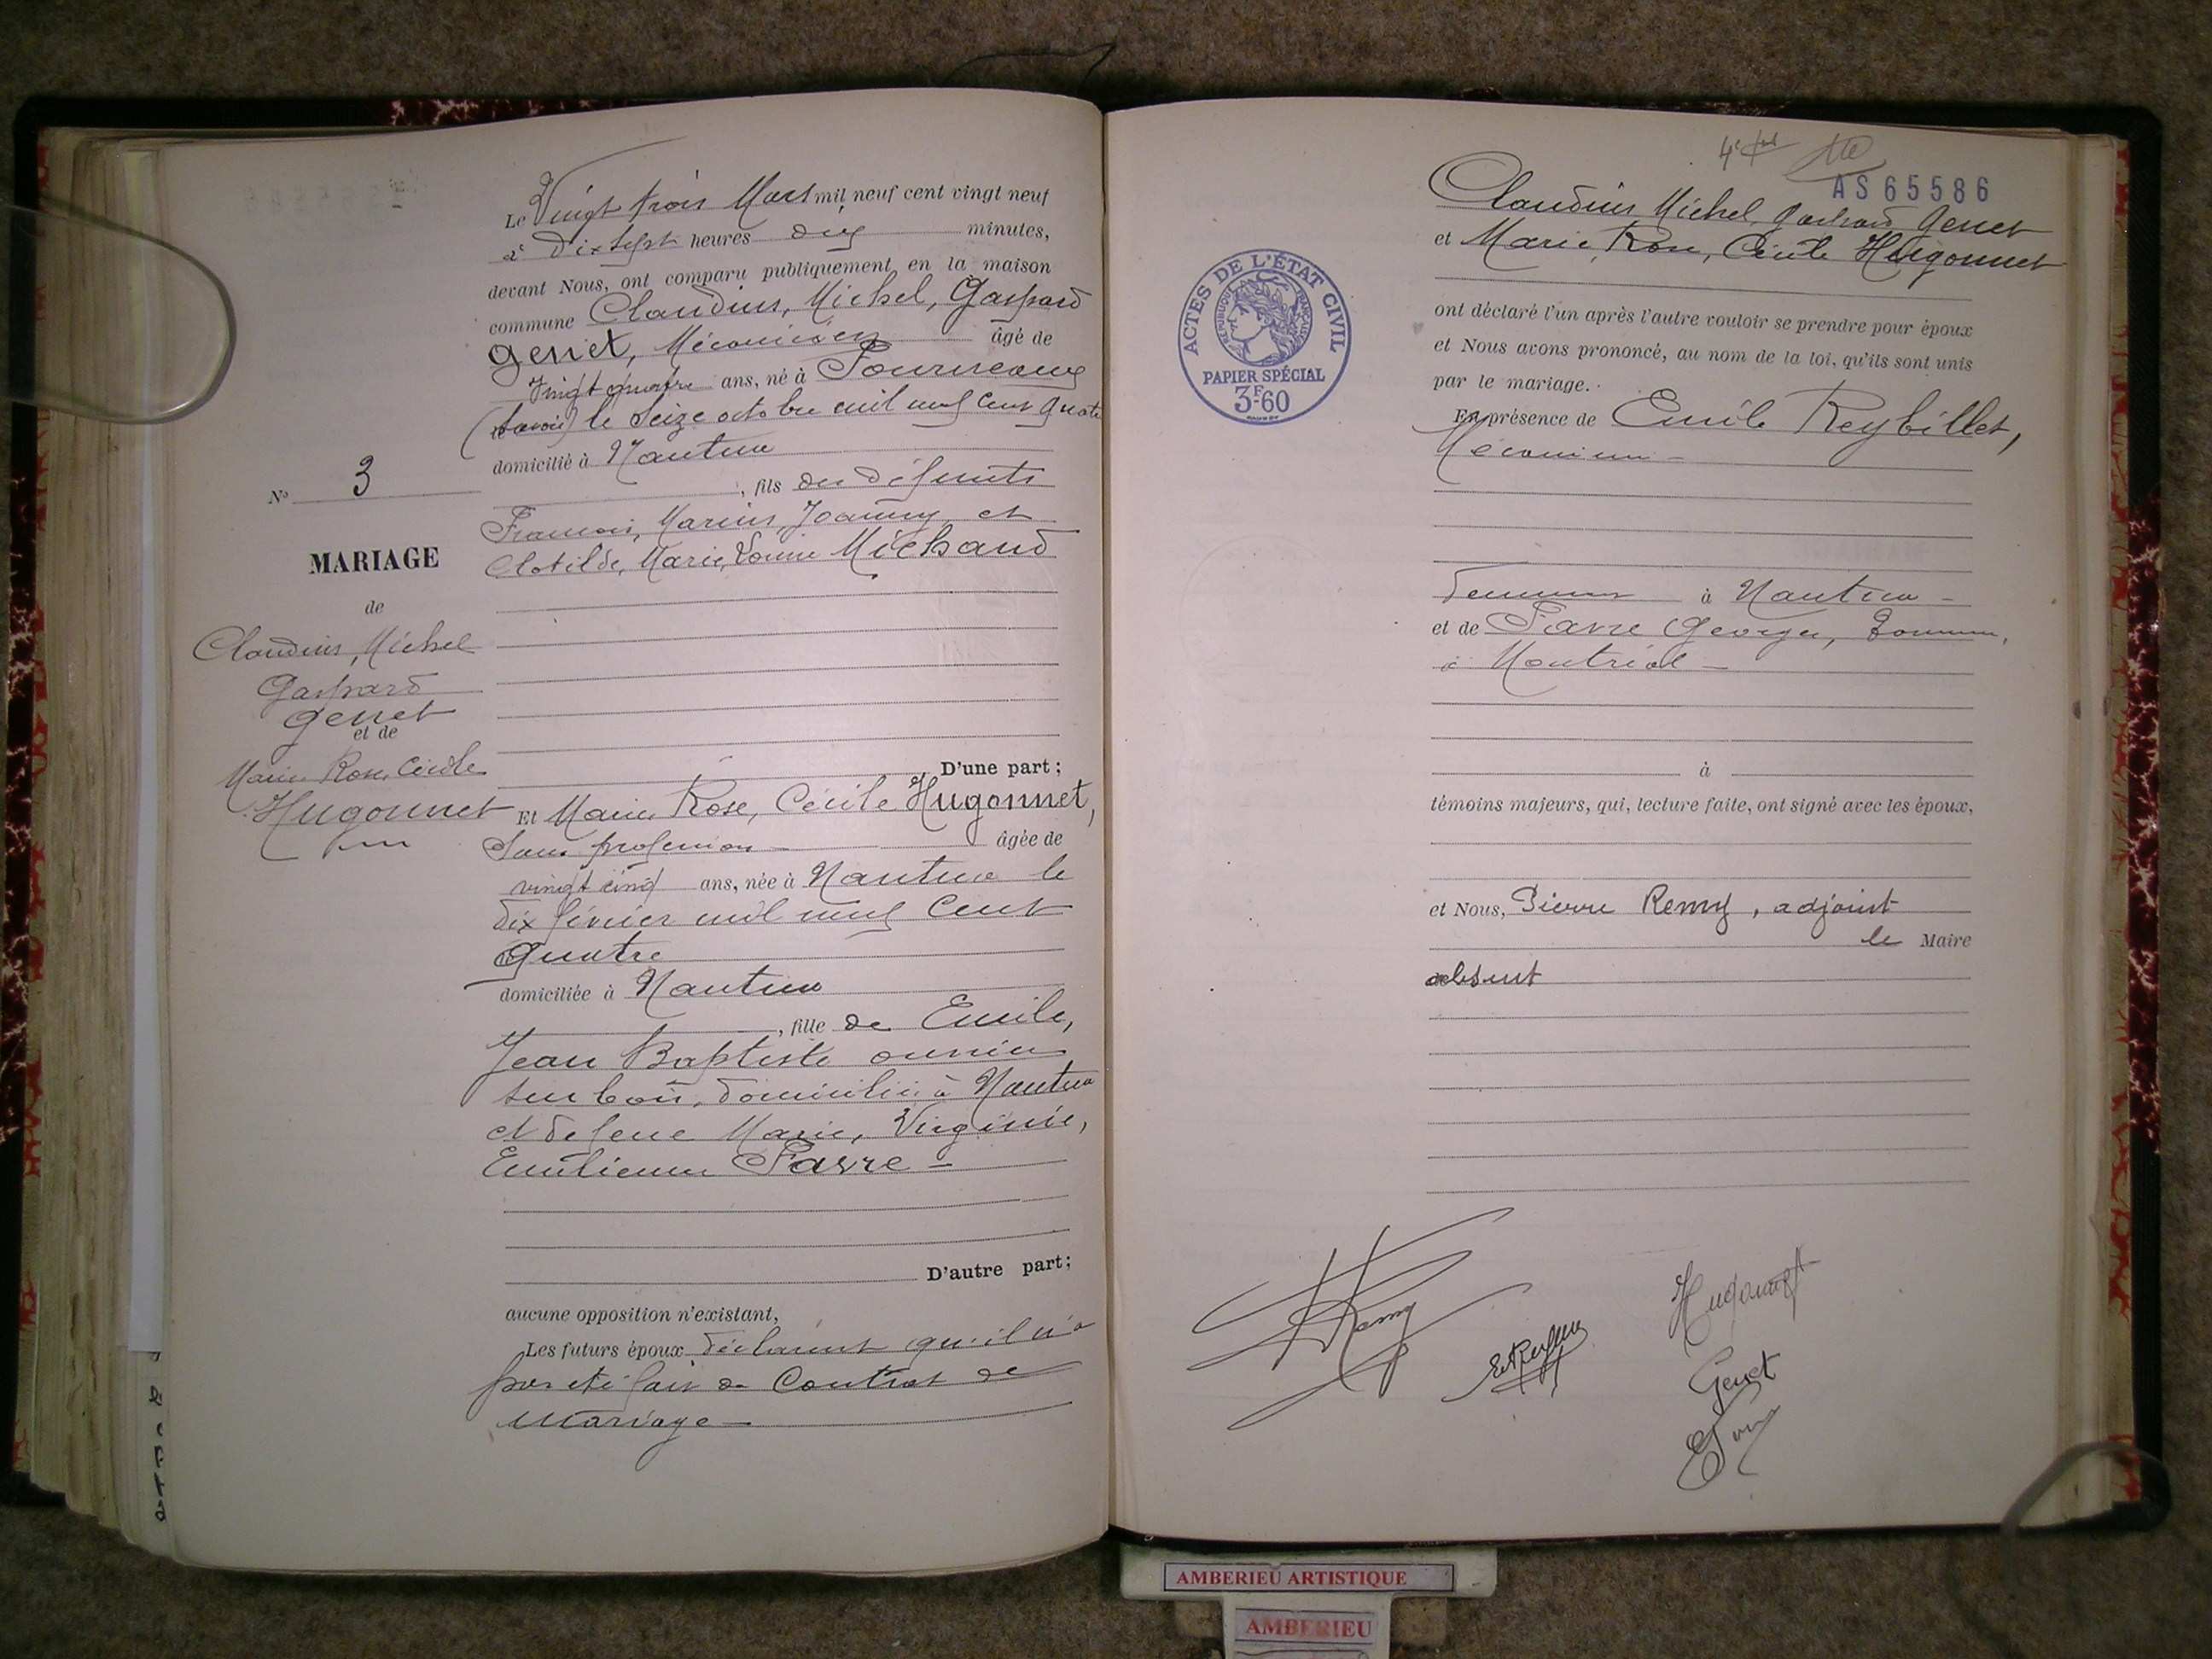 N° 3
MARIAGE
de
Claudius, Michel
Gaspard
Genet
et de
Marie Rose, Cécile
Hugonnet
Le Vingt trois Mars mil neuf cent vingt neuf
à dix sept heures dix minutes,
devant Nous, ont comparu publiquement en la maison
commune Claudius, Michel, Gaspard
Genet, Mécanicien âgé de
Vingt quatre ans, né à Fourneaux
(Savoie) le Seize octobre mil neuf cent quatre
domicilié à Nantua
, fils des défunts
François, Marius, Joanny et
Clotilde, Marie, Louise Michaud
D'une part;
Et Marie Rose, Cécile Hugonnet,
Sans profession âgée de
vingt cinq ans, née à Nantua le
dix février mil neuf Cent
Quatre
domiciliée à Nantua
, fille de Emile,
Jean Baptiste ouvrier
sur bois, domicilié à Nantua
et de feue Marie, Virginie,
Emilienne Favre
D'autre part;
aucune opposition n'existant,
Les futurs époux déclarent qu'il n'a
pas été fait de Contrat de
Mariage
4e
AS65586
Claudius Michel Gaspard Genet
et Marie, Rose, Cécile Hugonnet
ont déclaré l'un après l'autre vouloir se prendre pour époux
et Nous avons prononcé, au nom de la loi, qu'ils sont unis
par le mariage.
En présence de Emile Reybillet,
Mécanicien
demeurant à Nantua
et de Favre Georges,
à Montréal
à
témoins majeurs, qui, lecture faite, ont signé avec les époux,
et Nous, Pierre Remy, adjoint
le Maire
absent
ACTES DE L'ÉTAT CIVIL
RÉPUBLIQUE FRANÇAISE
PAPIER SPÉCIAL
3F60
Remy
Hugonnet
Genet
AMBERIEU ARTISTIQUE
AMBERIEU